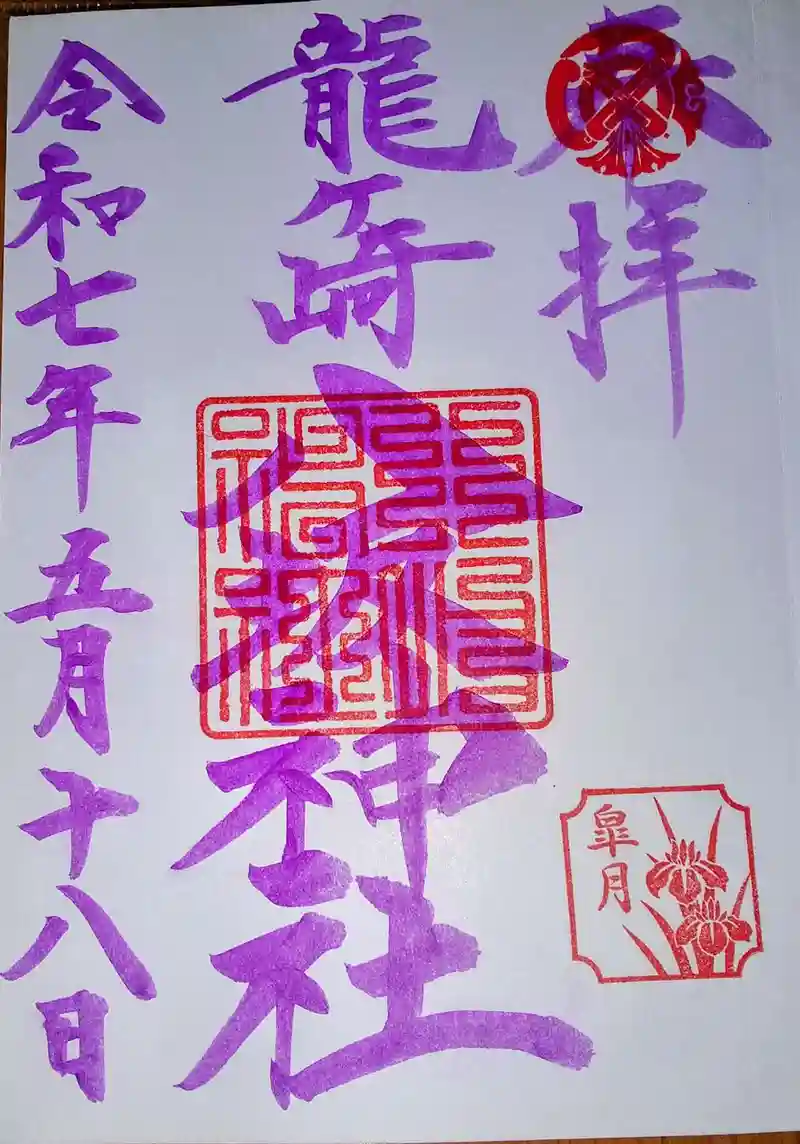 奉拝
龍ヶ崎八坂神社
令和七年五月十八日
皐月